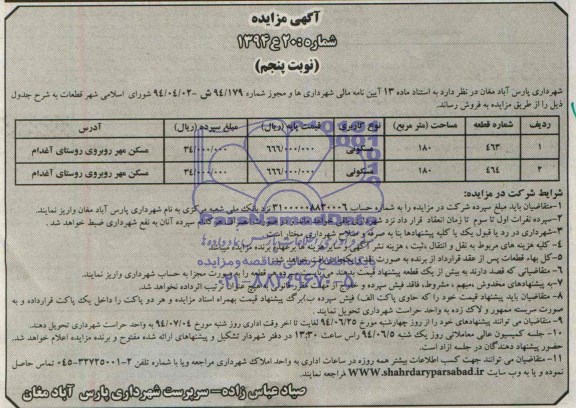 آگهی مزایده
شماره: ۲۰ ع ۱۳۹۴
(نوبت پنجم)
شهرداری پارس آباد مغان در نظر دارد به استناد ماده ۱۳ آیین نامه مالی شهرداری ها و مجوز شماره ۹۴/۱۷۹ ش -۹۴/۰۴/۰۲ شورای اسلامی شهر قطعات به شرح جدول
ذیل را از طریق مزایده به فروش رساند.
ردیف شماره قطعه مساحت (متر مربع) نوع کاربری قیمت پایه (ریال) مبلغ سپرده (ریال) آدرس
۱ ۴۶۳ ۱۸۰ مسکونی ۶۶۶/۰۰۰/۰۰۰ ۳۴/۰۰۰/۰۰۰ مسکن مهر روبروی روستای آغدام
۲ ۴۶۴ ۱۸۰ مسکونی ۶۶۶/۰۰۰/۰۰۰ ۳۴/۰۰۰/۰۰۰ مسکن مهر روبروی روستای آغدام
شرایط شرکت در مزایده:
۱-متقاضیان باید مبلغ سپرده شرکت در مزایده را به شماره حساب ۳۱۰۰۰۰۰۸۸۳۰۰۶ نزد بانک ملی شعبه مرکزی به نام شهرداری پارس آباد مغان واریز نمایند.
۲-سپرده نفرات اول تا سوم تا زمان انعقاد قرار داد نزد شهرداری سپرده آنان به نفع شهرداری ضبط خواهد شد.
۳-شهرداری در رد یا قبول یک یا کلیه پیشنهادها بنا به صرفه و صلاح شهرداری مختار است.
۴- کلیه هزینه های مربوط به نقل و انتقال ،ثبت ، هزینه نشر آگهی و سایر هزینه ها بر عهده برنده مزایده میباشد
۵- کل بهاء قطعات پس از عقد قرارداد از برنده به صورت
۶- متقاضیانی که قصد دارند به بیش از یک قطعه پیشنهاد قیمت بدهند می قطعه را به صورت مجزا به حساب شهرداری واریز نمایند.
۷-به پیشنهادهای مخدوش ،مبهم ، مشروط، فاقد فیش سپرده و خارج از ترتیب اثر داده نخواهد شد.
۸-متقاضیان باید پیشنهاد قیمت خود را که حاوی پاکت الف) فیش سپرده ب)برگ پیشنهاد قیمت بهمراه اسناد مزایده و هر دو پاکت را داخل یک پاکت قرارداده و به
صورت سربسته ممهور و لاک زده به واحد حراست شهرداری تحویل نمایند .
۹-متقاضیان می توانند پیشنهادهای خود را از روز چهارشنبه مورخ ۹۴/۰۶/۲۵ لغایت تا آخر وقت اداری روز شنبه مورخ ۹۴/۰۷/۰۴ به واحد حراست شهرداری تحویل دهند.
۱۰- جلسه کمیسیون عالی معاملاتی روز یک شنبه ۹۴/۰۶/۰۵ راس ساعت ۱۳:۳۰ در دفتر شهردار تشکیل و پیشنهادهای ارائه شده مفتوح و برنده مزایده اعلام خواهد شد.
حضور پیشنهاد دهندگان در جلسه آزاد است.
۱۱- متقاضیان می توانند جهت کسب اطلاعات بیشتر همه روزه در ساعات اداری به واحد املاک شهرداری مراجعه ویا با شماره تلفن ۲-۳۲۷۲۵۰۰۱-۰۴۵ تماس حاصل
نموده و یا به وب سایت WWW.shahrdaryparsabad.ir مراجعه نمایند.
صیاد عباس زاده– سرپرست شهرداری پارس آباد مغان
۰۲۱-۸۸۳۴۹۶۷۰-۵